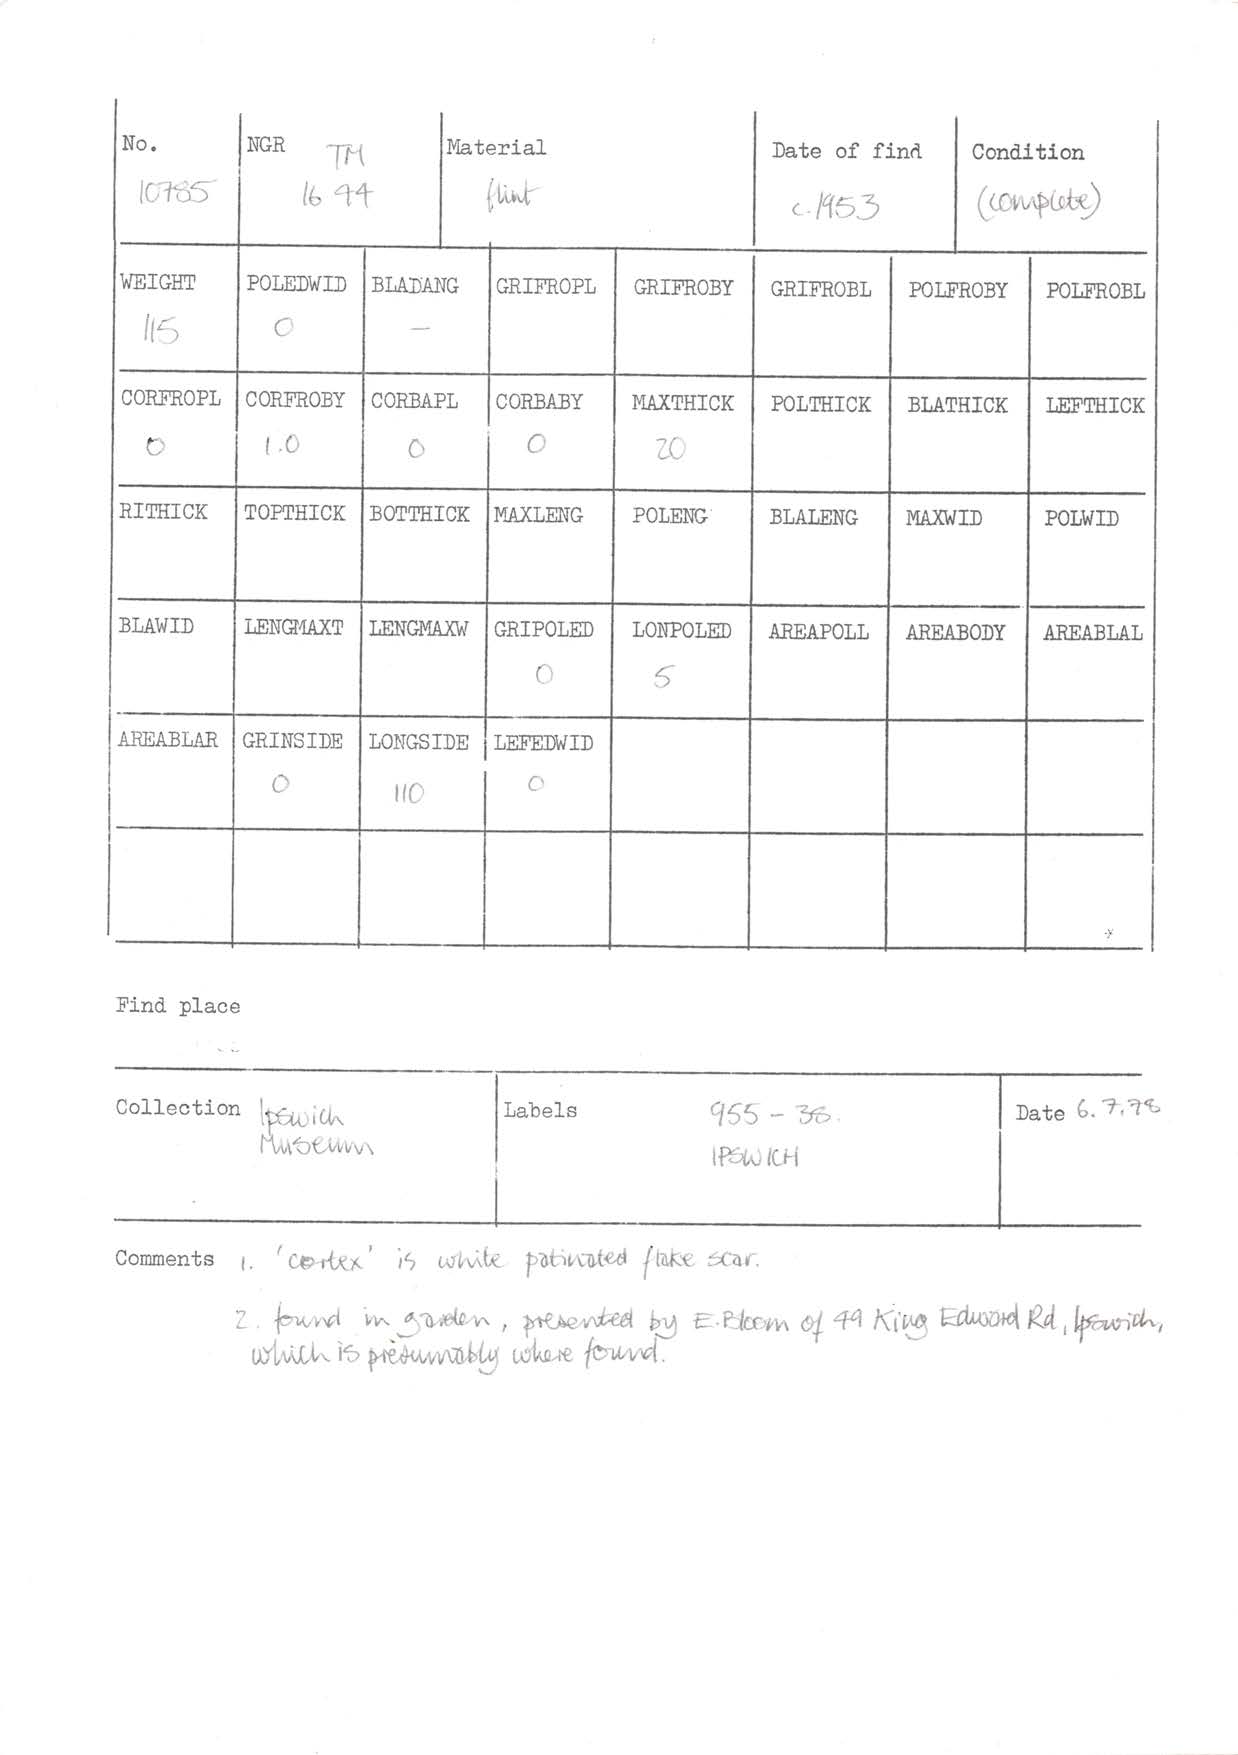 No. NGR TM Material Date of find Condition
10785 16 44 flint c.1953 (complete)
WEIGHT POLEDWID BLADANG GRIFROPL GRIFROBY GRIFROBL POLFROBY POLFROBL
115 0 —
CORFROPL CORFROBY CORBAPL CORBABY MAXTHICK POLTHICK BLATHICK LEFTHICK
0 1.0 0 0 20
RITHICK TOPTHICK BOTTHICK MAXLENG POLENG BLALENG MAXWID POLWID
BLAWID LENGMAXT LENGMAXW GRIPOLED LONPOLED AREAPOLL AREABODY AREABLAL
0 5
AREABLAR GRINSIDE LONGSIDE LEFEDWID
0 110 0
Find place
Collection Ipswich Labels 955 – 38. Date 6.7.78
Museum IPSWICH
Comments 1. 'cortex' is white patinated flake scar.
2. found in garden, presented by E. Bloom of 49 King Edward Rd, Ipswich,
which is presumably where found.